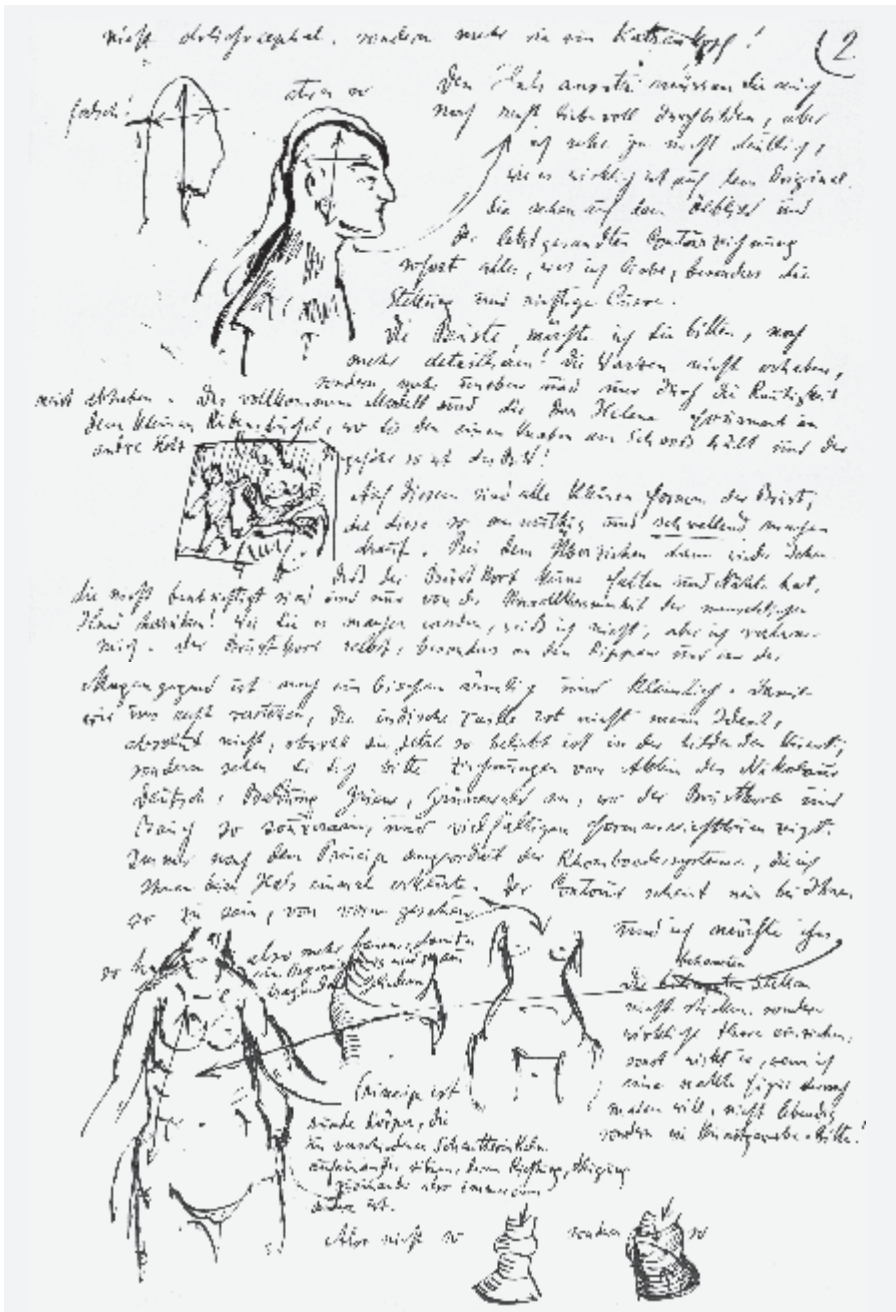 nicht dolichocephal. sondern mehr wie ein Katzenkopf!
2
falsch!
etwa so
Den Halsansatz müssen Sie mich
noch recht liebevoll durchbilden, aber
ich sehe ja nicht deutlich,
wie es wirklich ist auf dem Original.
Sie sehen auf dem Ölbild und
der letztgesandten Contourzeichnung
sofort alles, was ich liebe, besonders die
Stellung und richtige Curve.
Die Brüste, möchte ich Sie bitten, noch
mehr detaillieren! Die Warzen nicht erhaben,
sondern mehr uneben und nur durch die Rauhigkeit
Das vollkommene Modell sind die der Helene Fourment in
dem kleinen Rubensbüchel, wo sie den einen Knaben am Schooß hält und der
andre steht
Ungefähr so ist das Bild!
Auf diesem sind alle kleinen Formen der Brust,
die diese so anmuthig und schwellend machen
drauf. Bei dem Überziehen dann
daß der Brustkorb keine Falten und Nähte hat,
die nicht berechtigt sind und nur von der Unvollkommenheit der menschlichen
Hand herrühren! Wie Sie es machen werden, weiß ich nicht, aber ich
mich. Der Brustkorb selbst, besonders an den Rippen und an der
Magengegend ist noch ein bischen und kleinlich. Damit
wir uns recht verstehen, die indische Taille ist nicht mein Ideal,
absolut nicht, obwohl sie jetzt so beliebt ist in der bildenden Kunst,
sondern sehen Sie sich bitte Zeichnungen von des Nikolaus
Deutsch, Baldung Grien, Grünewald an, wo der Brustkorb und
Bauch so und vielfältigen Formenreichthum zeigt.
Immer nach dem Princip angeordnet der Rhomboedersysteme, die ich
Ihnen beim Hals einmal erklärte. Der Contour scheint mir bei Ihnen
so zu sein, von vorne gesehen
und ich möchte ihn
so
also mehr
die Stellen
nicht sondern
wirklich Haare einziehen,
sonst wirkt es, wenn ich
eine nackte Figur darnach
malen will, nicht lebendig
sondern wie Kunstgewerbe. Bitte!
Princip ist
runde Körper, die
in verschiedenen Schnittwinkeln
aufeinander sitzen, deren Richtung, Neigung
zueinander also immer eine
andre ist.
Also nicht so
sondern so